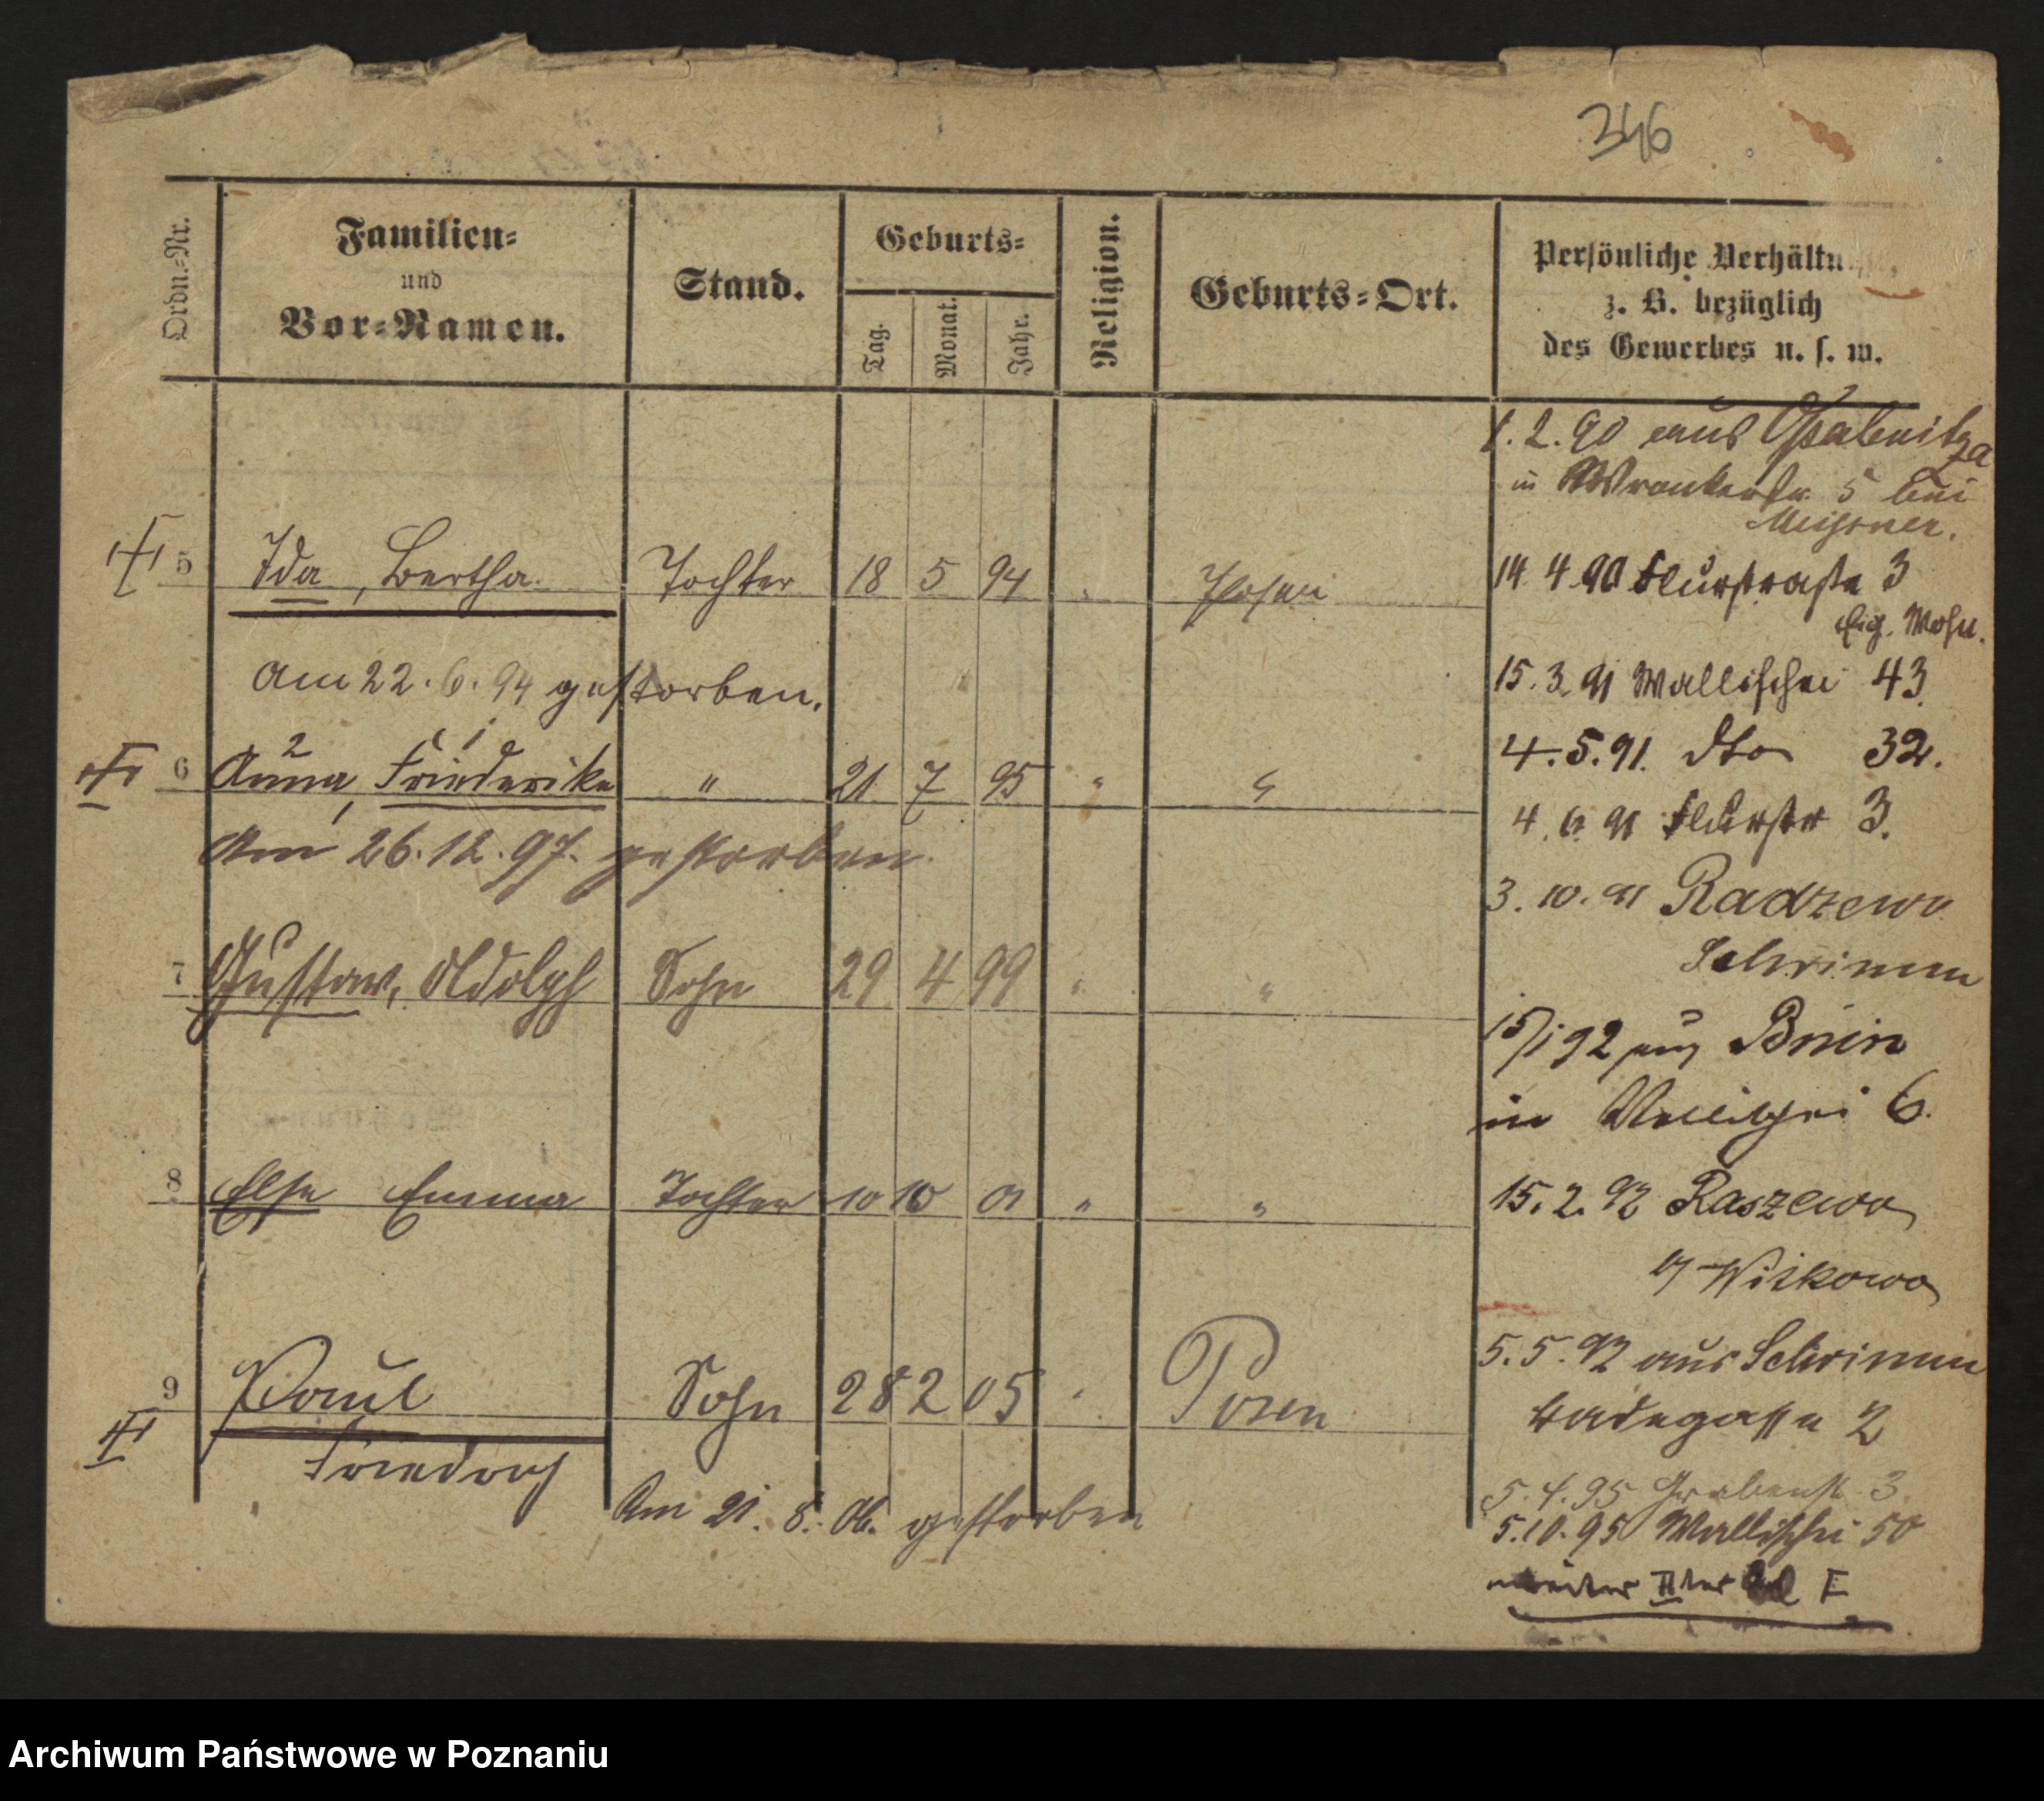 346
Ordn.-Nr.
Familien-
und
Vor-Namen.
Stand.
Geburts-
Tag.
Monat.
Jahr.
Religion.
Geburts-Ort.
Persönliche Verhältn
z. B. bezüglich
des Gewerbes u. s. w.
5 Ida, Bertha Tochter 18 5 94 " Posen
Am 22.6.94 gestorben.
2 1
6 Anna, Friederike " 21 7 95 " "
Am 26.12.97. gestorben.
7 Gustav, Adolph Sohn 29 4 99 " "
8 Else Emma Tochter 10 10 01 " "
9 Paul Sohn 28 2 05 " Posen
Friedrich
Am 21. 8. 06. gestorben
1.2.90 aus Opalenitza
in Wronkerstr. 5 bei
Meissner.
14 4 90 Flurstraße 3
Eig. Wohn.
15.3.91 Wallischei 43
4.5.91. dto 32.
4.6.91 Flurstr 3.
3.10.91 Radzewo
Schrimm
15/1 92 aus Bnin
in Wallischei 6.
15.2.92 Raszewo
Witkowo
5.5.92 aus Schrimm
Badegasse 2
5.4.95 Grabenst 3.
5.10.95 Wallischei 50
weiter II
Archiwum Państwowe w Poznaniu